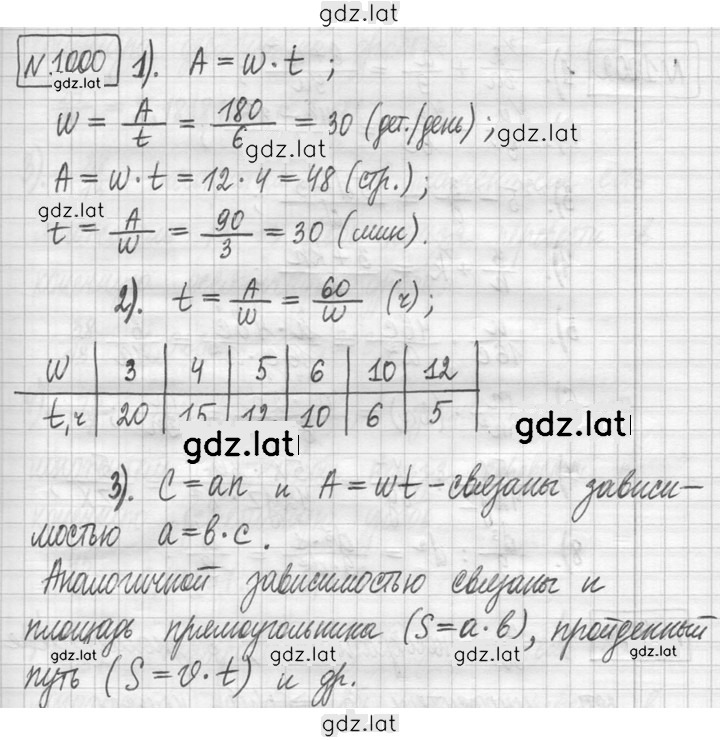 gdz.lat
N.1000 1). A = w · t ;
gdz.lat
w = A/t = 180/6 = 30 (дет./день) ; gdz.lat
gdz.lat
A = w · t = 12 · 4 = 48 (стр.) ;
gdz.lat
t = A/w = 90/3 = 30 (мин).
2). t = A/w = 60/w (ч) ;
w | 3 | 4 | 5 | 6 | 10 | 12
t,ч | 20 | 15 | 12 | 10 | 6 | 5
gdz.lat gdz.lat
3). C = an и A = wt – связаны зависи–
мостью a = b · c .
Аналогичной зависимостью связаны и
площадь прямоугольника (S = a · b), пройденный
gdz.lat gdz.lat gdz.lat gdz.lat
путь (S = v · t) и др.
gdz.lat